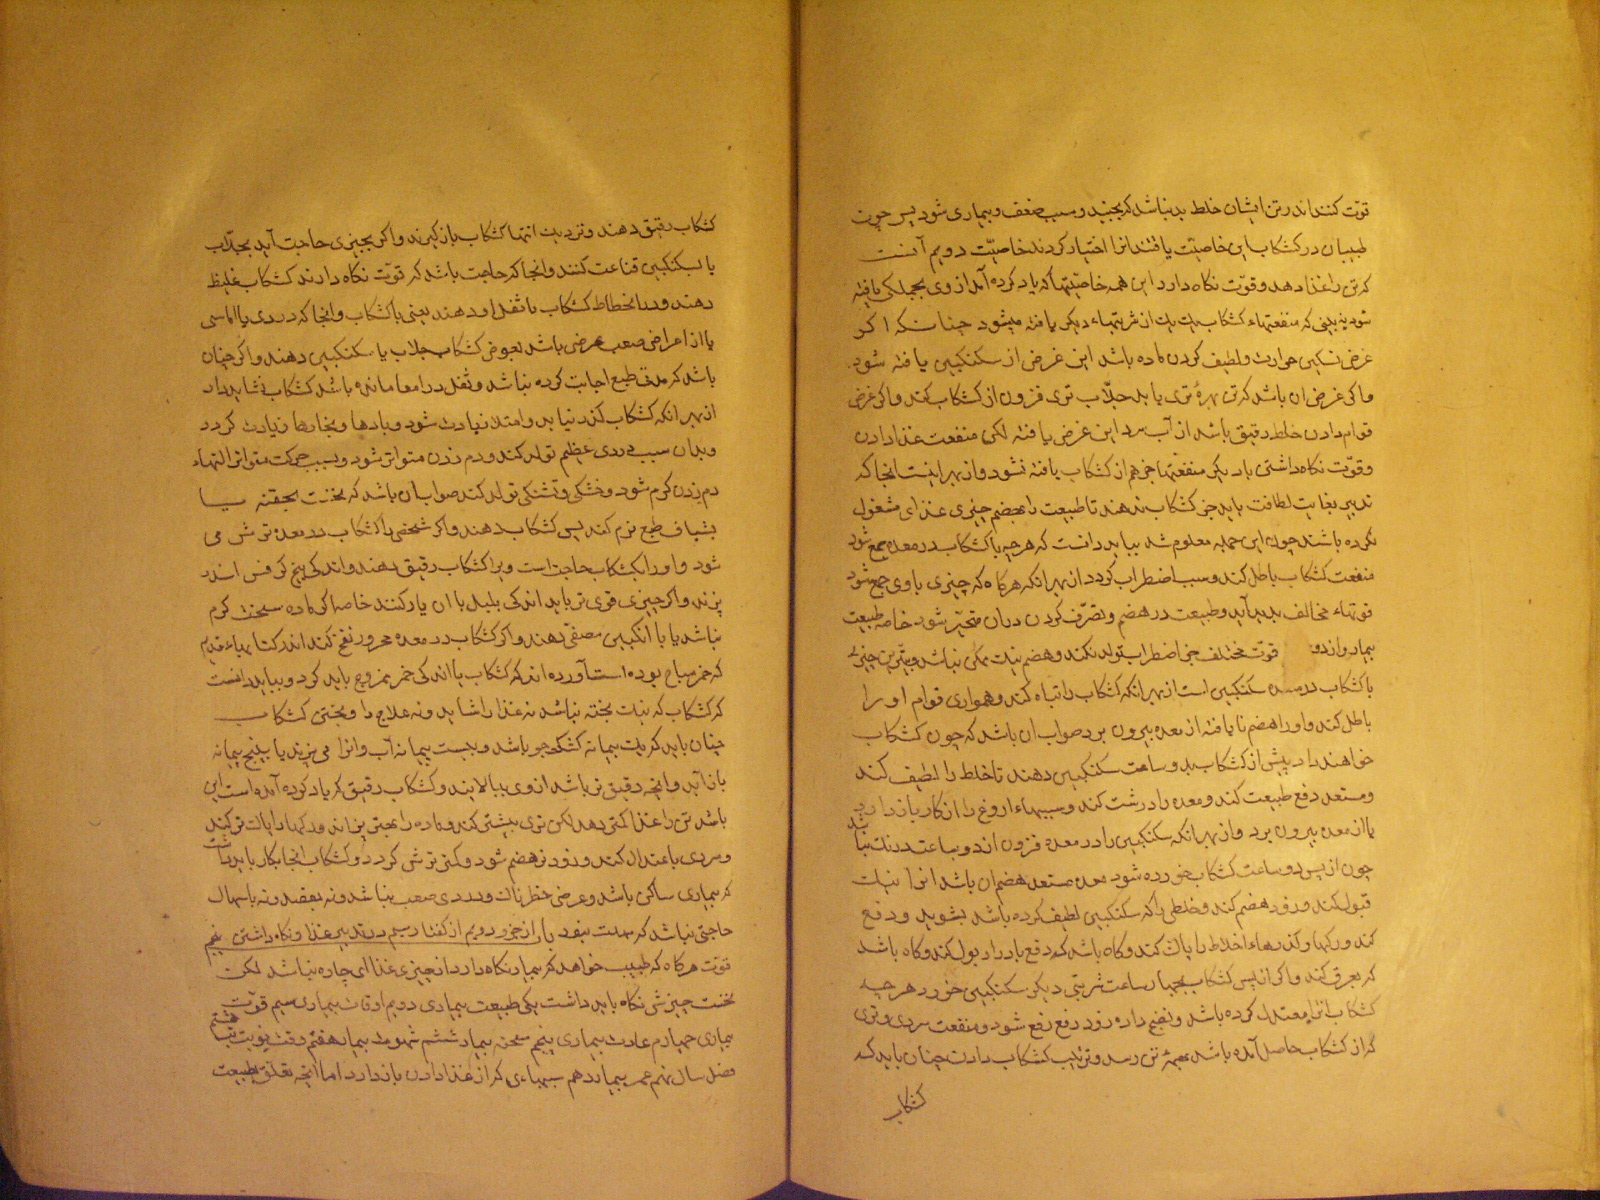 قوّت کنند اندر تن ایشان خلط بد نباشد که بجنبد و سبب ضعف و بیماری شود پس چون
طبیبان در کشکاب این خاصیّت یافتند انرا اختیار کردند خاصیّت دویم آنست
که تن را غذا دهد و قوّت نکاه دارد این همه خاصیّتها که یاد کرده آمد از وی بجملکی یافته
شود نه بینی که منفعتهاء کشکاب یک یک از شربتهاء دیکر یافته میشود چنانکه اکر
غرض تسکین حرارت و لطیف کردن ماده باشد این غرض از سکنکبین یافته شود
و اکر غرض ان باشد که تن بهرهٔ تری یابد جلّاب تری فزون از کشکاب کند و اکر غرض
قوام دادن خلط رقیق باشد از آب سرد این غرض یافته لکن منفعت غذا دادن
و قوّت نکاه داشتن با دیکر منفعتها جز هم از کشکاب یافته نشود و از بهر اینست انجا که
تدبیر بغایت لطافت باید جز کشکاب ندهند تا طبیعت را بهضم چیزی غذای مشغول
نکرده باشند چون این جمله معلوم شد بباید دانست که هرچه با کشکاب در معده جمع شود
منفعت کشکاب باطل کند و سبب اضطراب کردد از بهر انکه هرکاه که چیزی با وی جمع شود
قوتهاء مخالف پدید آید و طبیعت در هضم و تصرّف کردن دران متحیّر شود خاصه طبیعت
بیمار و از دو قوّت مختلف جز اضطراب تولد نکند و هضم نیک ممکن نباشد و بترین چیزی
با کشکاب در معده سکنکبین است از بهر انکه کشکاب را تباه کند و همواری قوام او را
باطل کند و او را هضم نایافته از معده بیرون برد صواب ان باشد که چون کشکاب
خواهند داد پیش از کشکاب بدو ساعت سکنکبین دهند تا خلط را لطیف کند
و مستعد دفع طبیعت کند و معده را درشت کند و سببهاء اروغ را از کار باز دارد
یا از معده بیرون برد و از بهر انکه سکنکبین را در معده فزون از دو ساعت درنک نباشد
چون از پس دو ساعت کشکاب خورده شود معده مستعد هضم ان باشد انرا نیک
قبول کند و زود هضم کند و خلطی را که سکنکبین لطیف کرده باشد بشوید و دفع
کند و رکها و کذرهاء اخلاط را پاک کند و کاه باشد که دفع بادرار بول کند و کاه باشد
که بعرق کند و اکر از پس کشکاب بچهار ساعت شربتی دیکر سکنکبین خورد هرچه
کشکاب انرا معتدل کرده باشد و نضج داده زود دفع شود و منفعت سردی و تری
که از کشکاب حاصل آمده باشد بهمهٔ تن رسد و ترتیب کشکاب دادن چنان باید که
کشکاب
کشکاب رقیق دهند و نزدیک انتها کشکاب باز کیرند و اکر بچیزی حاجت آید بجلّاب
یا بسکنکبین قناعت کنند و انجا که حاجت باشد که قوّت نکاه دارند کشکاب غلیظ
دهند و در انحطاط کشکاب با ثفل او دهند یعنی با کشکاب و انجا که دردی یا الماسی
یا از اعراض صعب عرضی باشد بعوض کشکاب جلاب یا سکنکبین دهند و اکر چنان
باشد که مدتی طبع اجابت کرده نباشد و ثفل در امعا مانده باشد کشکاب نشاید داد
از بهر انکه کشکاب کذر نیابد و امتلا زیادت شود و بادها و بخارها زیادت کردد
و بدان سبب دردی عظیم تولد کند و دم زدن متواتر شود و بسبب حرکت متواتر التهاء
دم زدن کرم شود و خشکی و تشنکی تولد کند صواب ان باشد که نخست بحقنه یا
بشیاف طبع نرم کنند پس کشکاب دهند و اکر شخصی را کشکاب در معده ترش می
شود و او را بکشکاب حاجت است ویرا کشکاب رقیق دهند و اندکی بیخ کرفس اندر
پزند و اکر چیزی قوی تر باید اندکی پلپل با ان یار کنند خاصه اکر ماده سخت کرم
نباشد یا با انکبین مصفّی دهند و اکر کشکاب در معده محرور نفخ کند اندر کتابهاء قدیم
که خمر مباح بوده است آورده اند که کشکاب با اندکی خمر ممزوج باید کرد و بباید دانست
که کشکاب که نیک پخته نباشد نه غذا را شاید و نه علاج را و پختن کشکاب
چنان باید که یک پیمانه کشک جو باشد و بیست پیمانه آب و انرا می پزند تا بپنج پیمانه
باز آید و انچه رقیق تر باشد از وی ببالایند و کشکاب رقیق که یاد کرده آمده است این
باشد تن را غذا کمتر دهد لکن تری بیشتر کند و ماده را بهتر پزاند و رکها را پاک تر کند
و سردی باعتدال کند و زود تر هضم شود و کمتر ترش کردد و کشکاب انجا بکار باید داشت
که بیماری ساکن باشد و عرضی خطرناک و دردی صعب نباشد و نه بفصد و نه باسهال
حاجتی نباشد که مهلت نبود باب از جزو دویم از کفتار سیم در تدبیر غذا و نکاه داشتن
قوّت هرکاه که طبیب خواهد که بیمار نکاه دارد از چیزی غذای چاره نباشد لکن
نخست چیزش نکاه باید داشت یکی طبیعت بیماری دویم اوقات بیماری سیم قوّت
بیماری چهارم عادت بیماری پنجم سحنه بیمار ششم شهوت بیمار هفتم وقت نوبت تب هشتم
فصل سال نهم عمر بیمار دهم سببهاءی که از غذا دادن باز دارد اما انچه تعلق بطبیعت